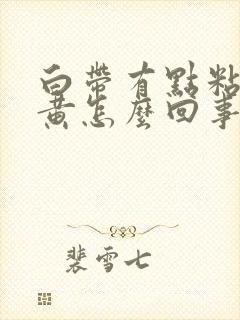 白帶有點粘
黃怎麼回事
裴雪七